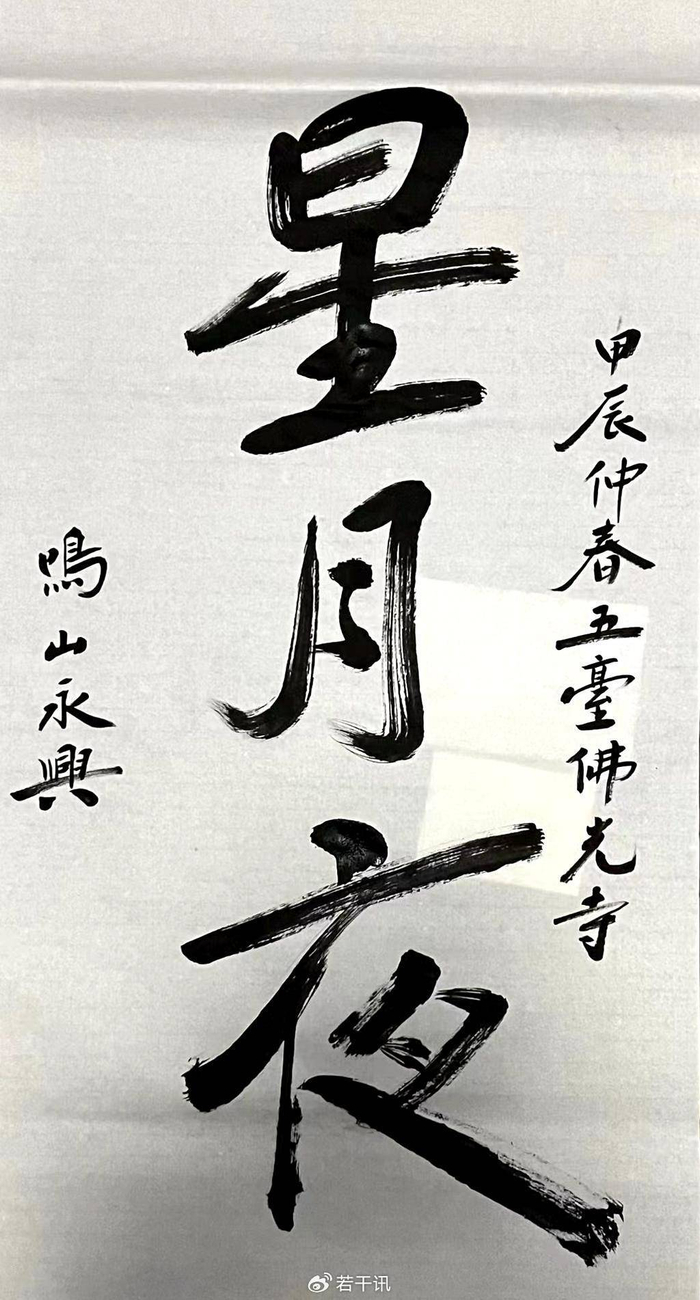 甲辰仲春五臺佛光寺
星月夜
鳴山永興
若干讯